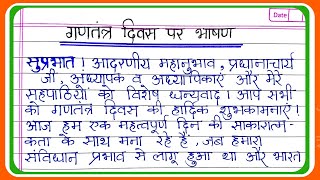 Date
गणतंत्र दिवस पर भाषण
सुप्रभात। आदरणीय महानुभाव, प्रधानाचार्य
जी, अध्यापक व अध्यापिकाएं और मेरे
सहपाठियों को विशेष धन्यवाद। आप सभी
को गणतंत्र दिवस की हार्दिक शुभकामनाएं।
आज हम एक महत्वपूर्ण दिन की सकारात्म-
कता के साथ मना रहे हैं, जब हमारा
संविधान प्रभाव से लागू हुआ था और भारत